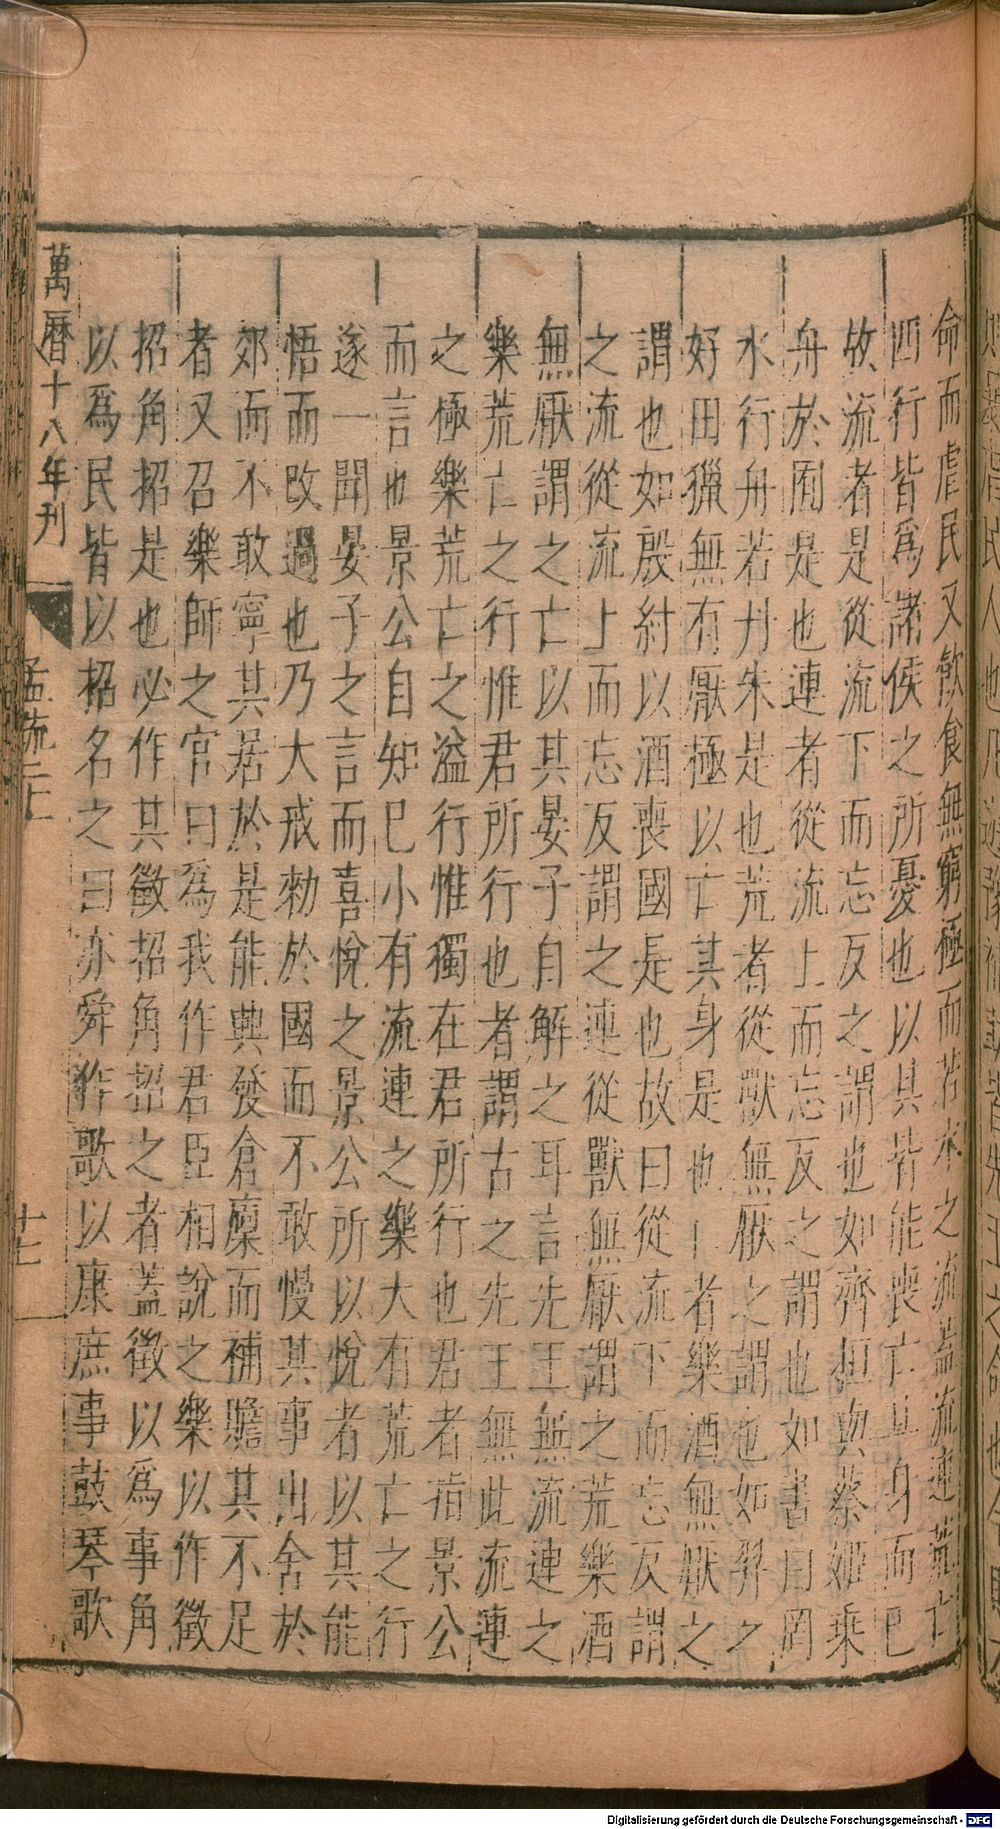 命而虐民又飲食無窮極而若水之流蓋流連荒亡
四行皆爲諸侯之所憂也以其皆能喪亡其身而已
故流者是從流下而忘反之謂也如齊桓與蔡姬乘
舟於囿是也連者從流上而忘反之謂也如書曰罔
水行舟若丹朱是也荒者從獸無厭之謂也如羿之
好田獵無有厭極以亡其身是也亡者樂酒無厭之
謂也如殷紂以酒喪國是也故曰從流下而忘反謂
之流從流上而忘反謂之連從獸無厭謂之荒樂酒
無厭謂之亡以其晏子自解之耳言先王無流連之
樂荒亡之行惟君所行也者謂古之先王無此流連
之極樂荒亡之溢行惟獨在君所行也君者指景公
而言也景公自知已小有流連之樂大有荒亡之行
遂一聞晏子之言而喜悅之景公所以悅者以其能
悟而改過也乃大戒勑於國而不敢慢其事出舍於
郊而不敢寧其居於是能興發倉廩而補贍其不足
者又召樂師之官曰爲我作君臣相說之樂以作徵
招角招是也必作其徵招角招之者蓋徵以爲事角
以爲民皆以招名之曰亦舜作歌以康庶事鼓琴歌
萬曆十八年刊
孟疏二上
十七
Digitalisierung gefördert durch die Deutsche Forschungsgemeinschaft - DFG